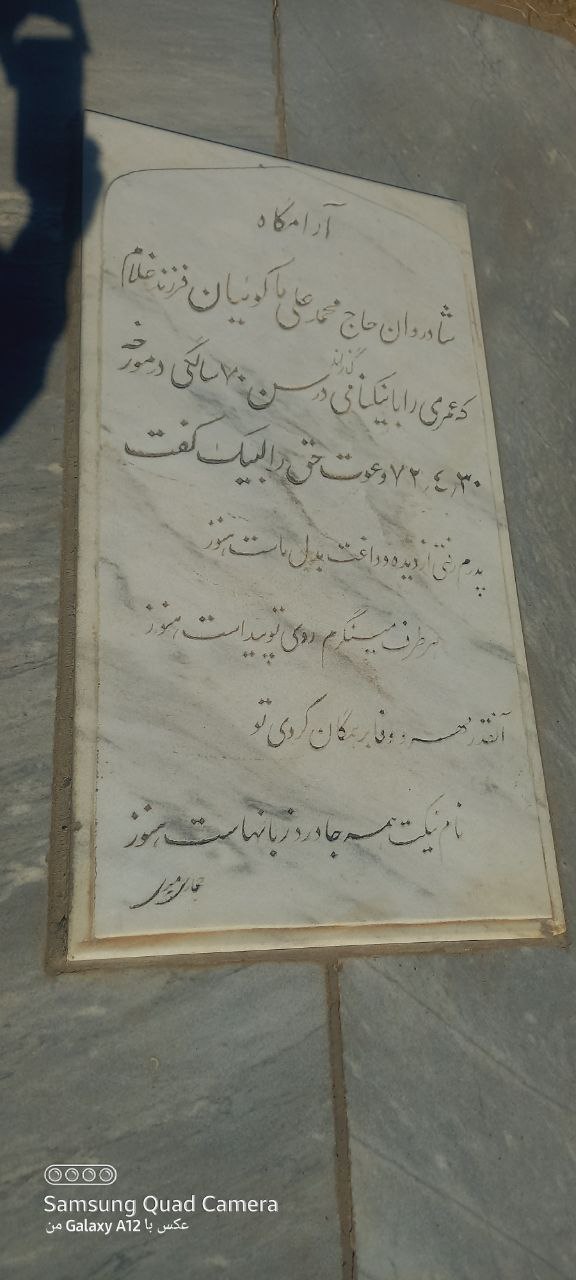 آرامگاه
شادروان حاج محمد علی باکوئیان فرزند غلام
که عمری را با نیکنامی گذراند در سن ۷۰ سالگی در مورخه
۷۲٫۴٫۳۰ دعوت حق را لبیک گفت
پدرم رفتی از دیده و داغت بدل ماست هنوز
هر طرف مینگرم روی تو پیداست هنوز
آنقدر مهر و وفا بر همگان کردی تو
نام نیکت همه جا ورد زبانهاست هنوز
Samsung Quad Camera
عکس با Galaxy A12 من